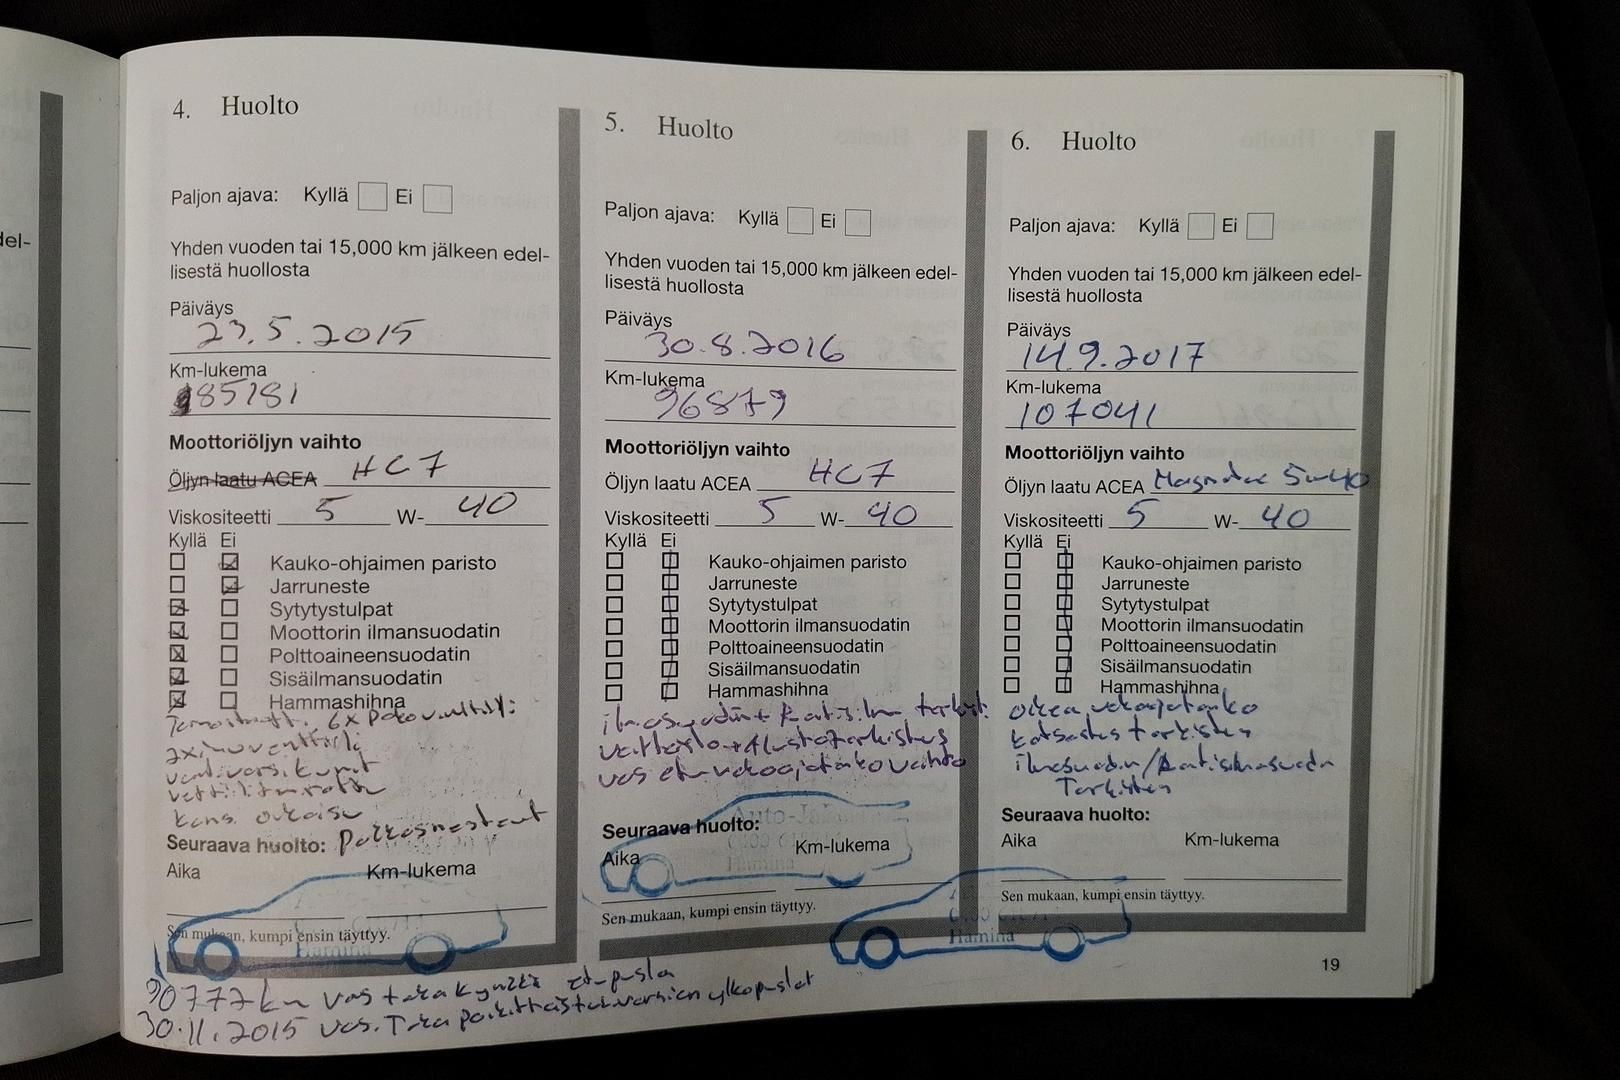 del-
4. Huolto
Paljon ajava: Kyllä Ei
Yhden vuoden tai 15,000 km jälkeen edel-
lisestä huollosta
Päiväys
23.5.2015
Km-lukema
85181
Moottoriöljyn vaihto
Öljyn laatu ACEA HC7
Viskositeetti 5 W- 40
Kyllä Ei
Kauko-ohjaimen paristo
Jarruneste
Sytytystulpat
Moottorin ilmansuodatin
Polttoaineensuodatin
Sisäilmansuodatin
Hammashihna
6x pakoventtiili:
2x imuventtiili
oikaisu
Seuraava huolto: Pakkasnesteet
Aika Km-lukema
Sen mukaan, kumpi ensin täyttyy.
Hamina
90777 km vas taka kynää etupusla
30.11.2015 vas. Taka poikittaistukivarsien ylkopuslat
5. Huolto
Paljon ajava: Kyllä Ei
Yhden vuoden tai 15,000 km jälkeen edel-
lisestä huollosta
Päiväys
30.8.2016
Km-lukema
96879
Moottoriöljyn vaihto
Öljyn laatu ACEA HC7
Viskositeetti 5 W- 40
Kyllä Ei
Kauko-ohjaimen paristo
Jarruneste
Sytytystulpat
Moottorin ilmansuodatin
Polttoaineensuodatin
Sisäilmansuodatin
Hammashihna
ilmasuodin + Raitis.ilm tarkist.
vaihteisto + Alustatarkistus
vas etu vakaajatanko vaihto
Seuraava huolto:
Aika Km-lukema
Hamina
Sen mukaan, kumpi ensin täyttyy.
6. Huolto
Paljon ajava: Kyllä Ei
Yhden vuoden tai 15,000 km jälkeen edel-
lisestä huollosta
Päiväys
14.9.2017
Km-lukema
107041
Moottoriöljyn vaihto
Öljyn laatu ACEA Magnatec 5w-40
Viskositeetti 5 W- 40
Kyllä Ei
Kauko-ohjaimen paristo
Jarruneste
Sytytystulpat
Moottorin ilmansuodatin
Polttoaineensuodatin
Sisäilmansuodatin
Hammashihna
oikea vakaajatanko
katsastus tarkistus
ilmasuodin/Raitisilmasuodin
Tarkistus
Seuraava huolto:
Aika Km-lukema
Sen mukaan, kumpi ensin täyttyy.
Hamina
19